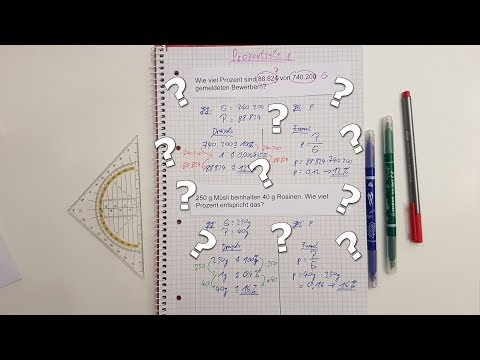 Prozentsatz p
Wie viel Prozent sind 88.824 von 740.200 G
gemeldeten Bewerbern?
geg: G = 740.200 ges: p
P = 88.824
Dreisatz Formel
740.200 ≙ 100% p = P/G
1 ≙
88.824 ≙ 12% p = 88.824 : 740.200
p = 0,12 → 12%
250 g Müsli beinhalten 40 g Rosinen. Wie viel
Prozent entspricht das?
geg: G = 250g ges: p
P = 40g
Dreisatz Formel
250g ≙ 100% p = P/G
:250 1g ≙ 0,4% :250
p = 40g : 250g
40 40g ≙ 16% ·40 = 0,16 → 16%